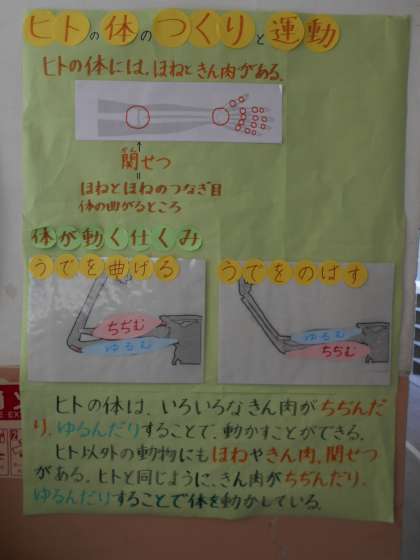 ヒトの体のつくりと運動
ヒトの体には、ほねときん肉がある。
かん
関せつ
ほねとほねのつなぎ目
体の曲がるところ
体が動く仕くみ
うでを曲げる
ちぢむ
ゆるむ
うでをのばす
ゆるむ
ちぢむ
ヒトの体は、いろいろなきん肉がちぢんだ
り、ゆるんだりすることで、動かすことができる。
ヒト以外の動物にも、ほねやきん肉、関せつ
がある。ヒトと同じように、きん肉がちぢんだり、
ゆるんだりすることで体を動かしている。